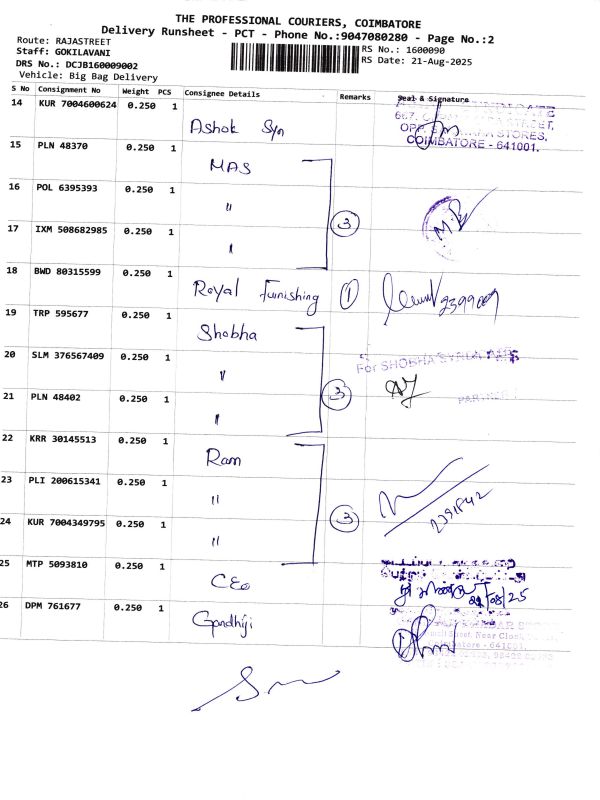 THE PROFESSIONAL COURIERS, COIMBATORE
Delivery Runsheet - PCT - Phone No.:9047080280 - Page No.:2
Route: RAJASTREET
Staff: GOKILAVANI
RS No.: 1600090
DRS No.: DCJB160009002
RS Date: 21-Aug-2025
Vehicle: Big Bag Delivery
S No Consignment No Weight PCS Consignee Details Remarks Seal & Signature
14 KUR 7004600624 0.250 1 Ashok Syn
667,
STREET,
OPP. STORES,
COIMBATORE - 641001.
15 PLN 48370 0.250 1 MAS
16 POL 6395393 0.250 1 "
17 IXM 508682985 0.250 1 "
3
18 BWD 80315599 0.250 1 Royal Furnishing 1
19 TRP 595677 0.250 1 Shobha
20 SLM 376567409 0.250 1 "
For SHOBHA
21 PLN 48402 0.250 1 "
3
PARTNER
22 KRR 30145513 0.250 1 Ram
23 PLI 200615341 0.250 1 "
24 KUR 7004349795 0.250 1 "
3
2391842
25 MTP 5093810 0.250 1 CEO
21/08/25
26 DPM 761677 0.250 1 Gandhiji
Street, Near Clock
- 641001.